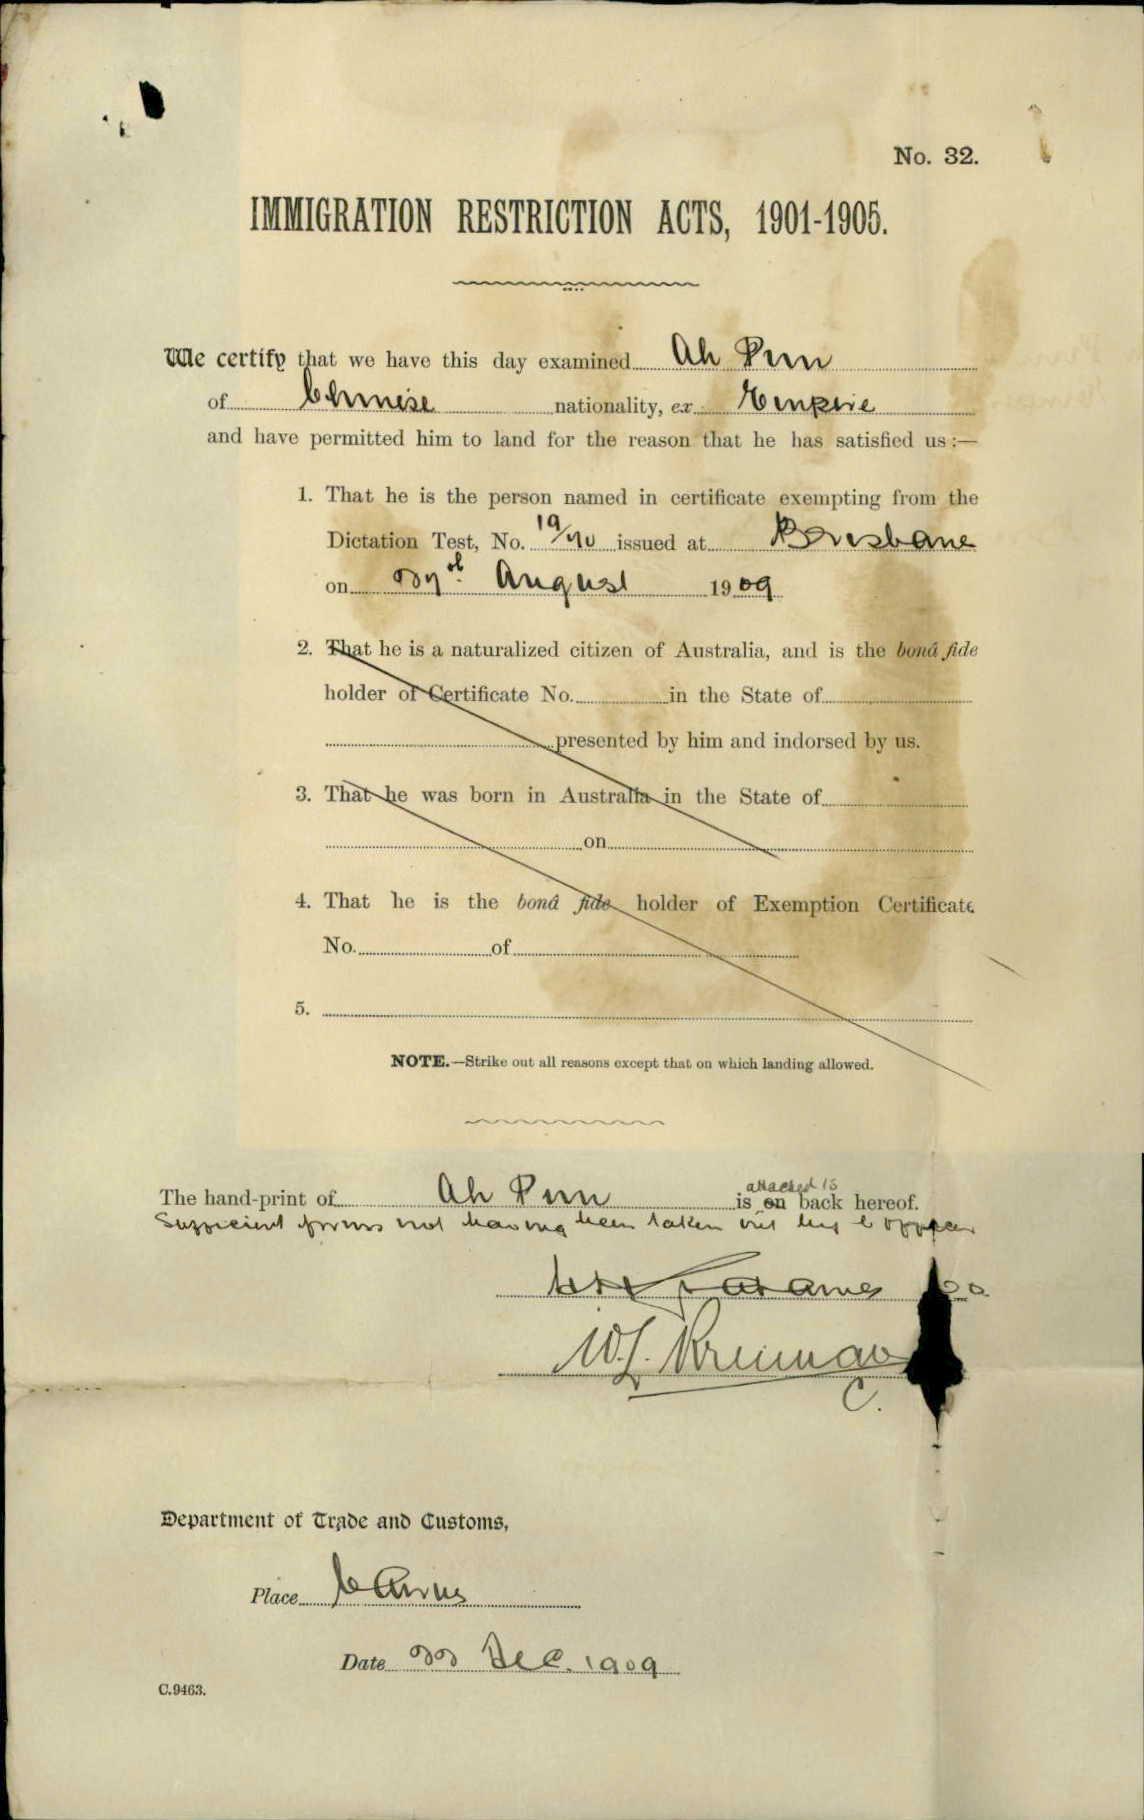 No. 32.
IMMIGRATION RESTRICTION ACTS, 1901-1905.
We certify that we have this day examined Ah Pun
of Chinese nationality, ex Empire
and have permitted him to land for the reason that he has satisfied us :—
1. That he is the person named in certificate exempting from the
Dictation Test, No. issued at Brisbane
on August 1909
2. That he is a naturalized citizen of Australia, and is the bonâ fide
holder of Certificate No. in the State of
presented by him and indorsed by us.
3. That he was born in Australia in the State of
on
4. That he is the bonâ fide holder of Exemption Certificate
No. of
5.
NOTE.—Strike out all reasons except that on which landing allowed.
attached is
The hand-print of Ah Pun is on back hereof.
not having been taken
C.
Department of Trade and Customs,
Place Cairns
Date 22 Dec. 1909
C.9463.